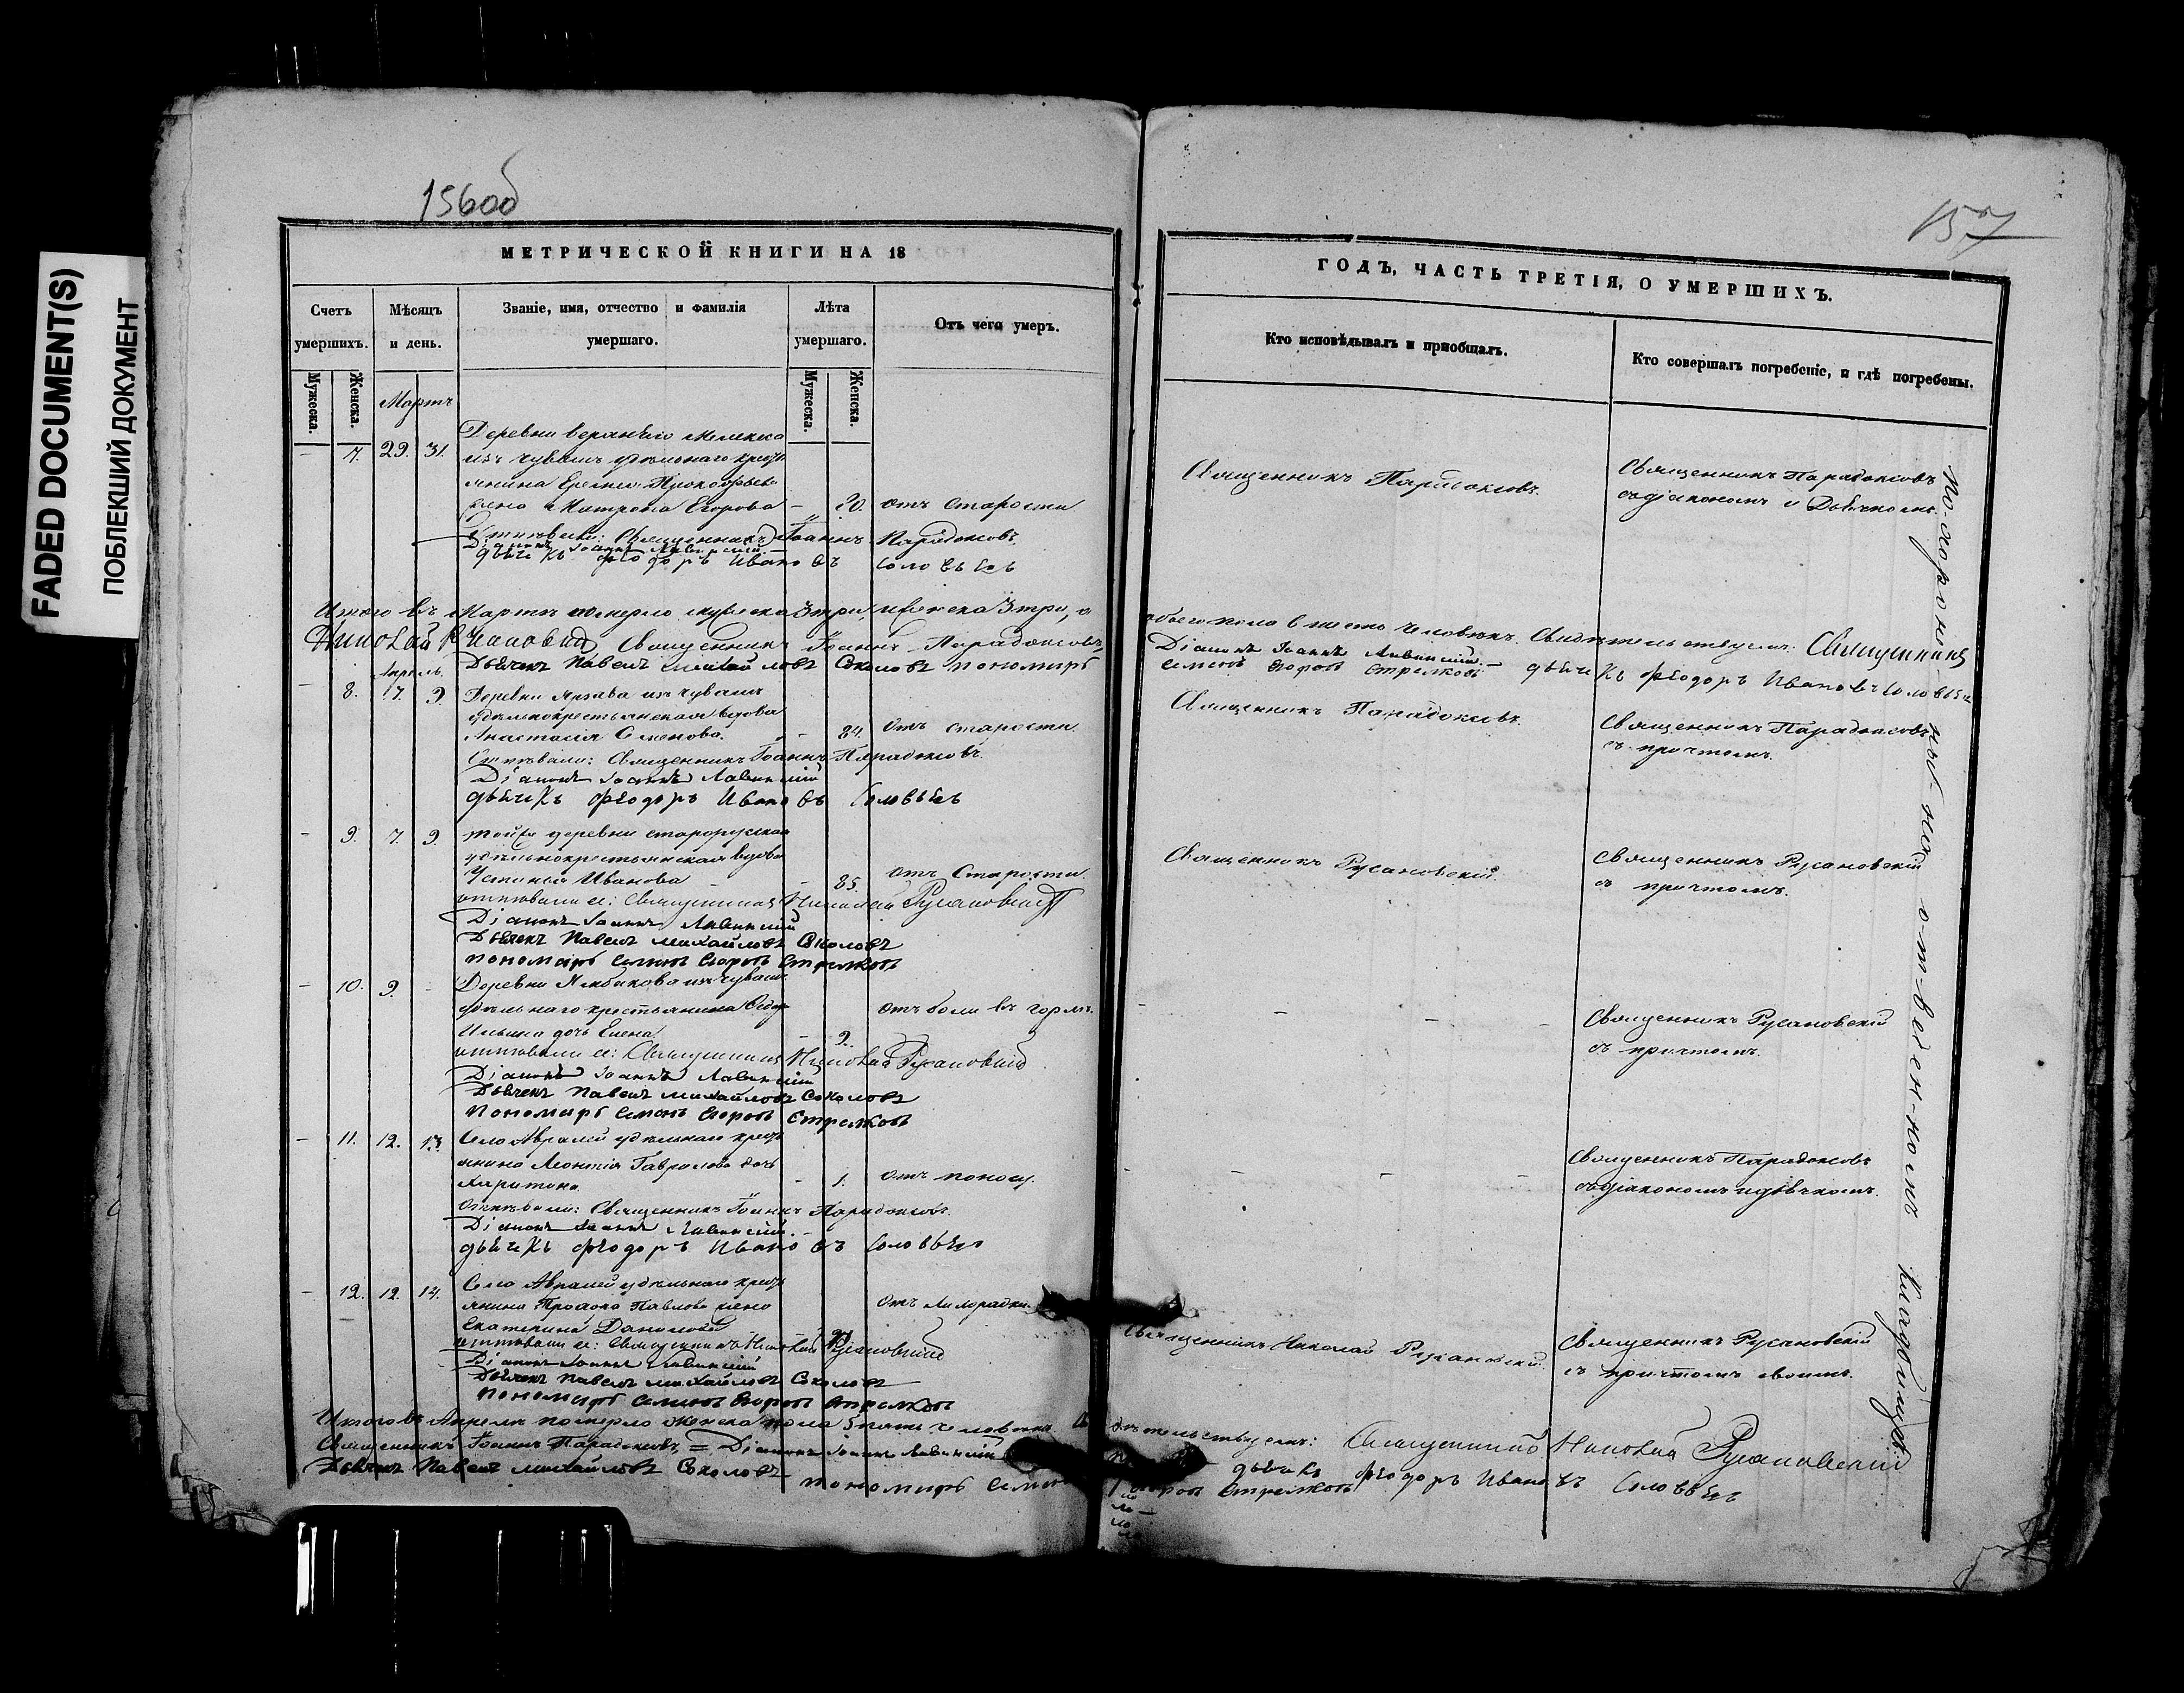 FADED DOCUMENT(S)
ПОБЛЕКШИЙ ДОКУМЕНТ
156об
МЕТРИЧЕСКОЙ КНИГИ НА 18
Счетъ умершихъ.
Мѣсяцъ и день.
Званіе, имя, отчество и фамилія умершаго.
Лѣта умершаго.
Отъ чего умеръ.
Мужеска.
Женска.
Мужеска.
Женска.
Мартъ
Деревни верхняго Мелекеса
7. 29. 31. изъ чувашъ удѣльнаго кресть
янина Прокофьева
жена Матрона Егорова - 70. отъ старости
Отпѣвали: Священникъ Іоаннъ Парадоксовъ.
Діаконъ Іоаннъ Лавинскій.
дьячекъ Феодоръ Ивановъ Соловьевъ
Итого въ Мартѣ померло мужеска 3 три, женска 3 три, а
Николай Русановскій Священникъ Іоаннъ Парадоксовъ
Дьячекъ Павелъ Михайловъ Соколовъ пономарь
Апрѣль.
8. 7. 9. Деревни изъ чувашъ
удѣльнокрестьянская вдова
Анастасія Семенова. - 84. Отъ старости.
Отпѣвали: Священникъ Іоаннъ Парадоксовъ.
Діаконъ Іоаннъ Лавинскій
дьячекъ Феодоръ Ивановъ Соловьевъ
9. 7. 9. тойже деревни старорусская
удѣльнокрестьянская вдова
Устинья Иванова - 85. отъ Старости.
отпѣвали ее: Священникъ Николай Русановскій
Діаконъ Іоаннъ Лавинскій
Дьячекъ Павелъ Михайловъ Соколовъ
пономарь Семенъ Егоровъ Стрелковъ
10. 9. - Деревни изъ чувашъ
удѣльнаго крестьянина
Ильина дочь Елена - 9. отъ боли въ горлѣ.
отпѣвали ее: Священникъ Николай Русановскій
Діаконъ Іоаннъ Лавинскій
Дьячекъ Павелъ Михайловъ Соколовъ
пономарь Семенъ Егоровъ Стрелковъ
11. 12. 13. Село Авралей удѣльнаго кресть
янина Леонтія Гаврилова дочь
Харитина - 1. отъ поносу.
Отпѣвали: Священникъ Іоаннъ Парадоксовъ.
Діаконъ Іоаннъ Лавинскій.
дьячекъ Феодоръ Ивановъ Соловьевъ
12. 12. 14. Село Авралей удѣльнаго кресть
янина Павлова жена отъ лихорадки.
Екатерина Данилова
отпѣвали ее: Священникъ Николай Русановскій
Діаконъ Іоаннъ Лавинскій
Дьячекъ Павелъ Михайловъ Соколовъ
пономарь Семенъ Егоровъ Стрелковъ
Итого въ Апрелѣ померло женска пола 5 пять человѣкъ.
Священникъ Іоаннъ Парадоксовъ = Діаконъ Іоаннъ Лавинскій
Дьячекъ Павелъ Михайловъ Соколовъ
пономарь Семенъ
157
ГОДЪ, ЧАСТЬ ТРЕТІЯ, О УМЕРШИХЪ.
Кто исповѣдывалъ и пріобщалъ.
Кто совершалъ погребеніе, и гдѣ погребены.
Священникъ Парадоксовъ.
Священникъ Парадоксовъ
съ діакономъ и Дьячкомъ.
обоего пола 6 шесть человѣкъ. Свидѣтельствуемъ: Священникъ
Діаконъ Іоаннъ Лавинскій. -
Семенъ Егоровъ Стрелковъ дьячекъ Феодоръ Ивановъ Соловьевъ
Священникъ Парадоксовъ.
Священникъ Парадоксовъ
съ причтомъ.
Священникъ Русановскій.
Священникъ Русановскій
съ причтомъ.
Священникъ Русановскій
съ причтомъ.
Священникъ Парадоксовъ
съ діакономъ и дьячкомъ.
Священникъ Николай Русановскій.
Священникъ Русановскій
съ причтомъ своимъ.
Свидѣтельствуемъ: Священникъ Николай Русановскій
дьячекъ Феодоръ Ивановъ Соловьевъ
Егоровъ Стрелковъ
похоронены на отведенномъ кладбищѣ.